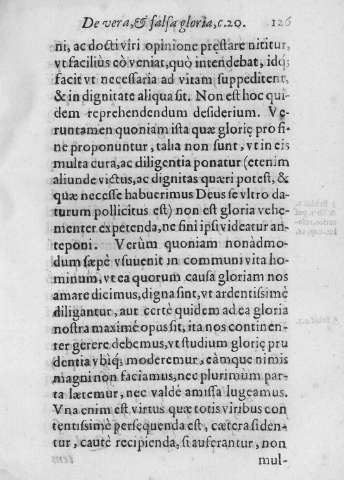 De vera, & falsa gloria, c.20. 126
ni, ac docti viri opinione prestare nititur,
vt facilius eò veniat, quò intendebat, idq;
facit vt necessaria ad vitam suppeditent,
& in dignitate aliqua sit. Non est hoc qui-
dem reprehendendum desiderium. Ve-
runtamen quoniam ista quæ glorię pro fi-
ne proponuntur, talia non sunt, vt in eis
multa cura, ac diligentia ponatur (etenim
aliunde victus, ac dignitas quæri potest, &
quæ necesse habuerimus Deus se vltro da-
turum pollicitus est) non est gloria vehe-
menter expetenda, ne fini ipsi videatur an-
teponi. Verùm quoniam nonàdmo-
dum sæpè vsuuenit in communi vita ho-
minum, vt ea quorum causa gloriam nos
amare dicimus, digna sint, vt ardentissimè
diligantur, aut certè quidem ad ea gloria
nostra maximè opus sit, ita nos continen-
ter gerere debemus, vt studium glorię pru
dentia vbiq; moderemur, eàmque nimis
magni non faciamus, nec plurimùm par-
ta lætemur, nec valdè amissa lugeamus.
Vna enim est virtus quæ totis viribus con
tentissimè persequenda est, cætera si den-
tur, cautè recipienda, si auferantur, non
mul-